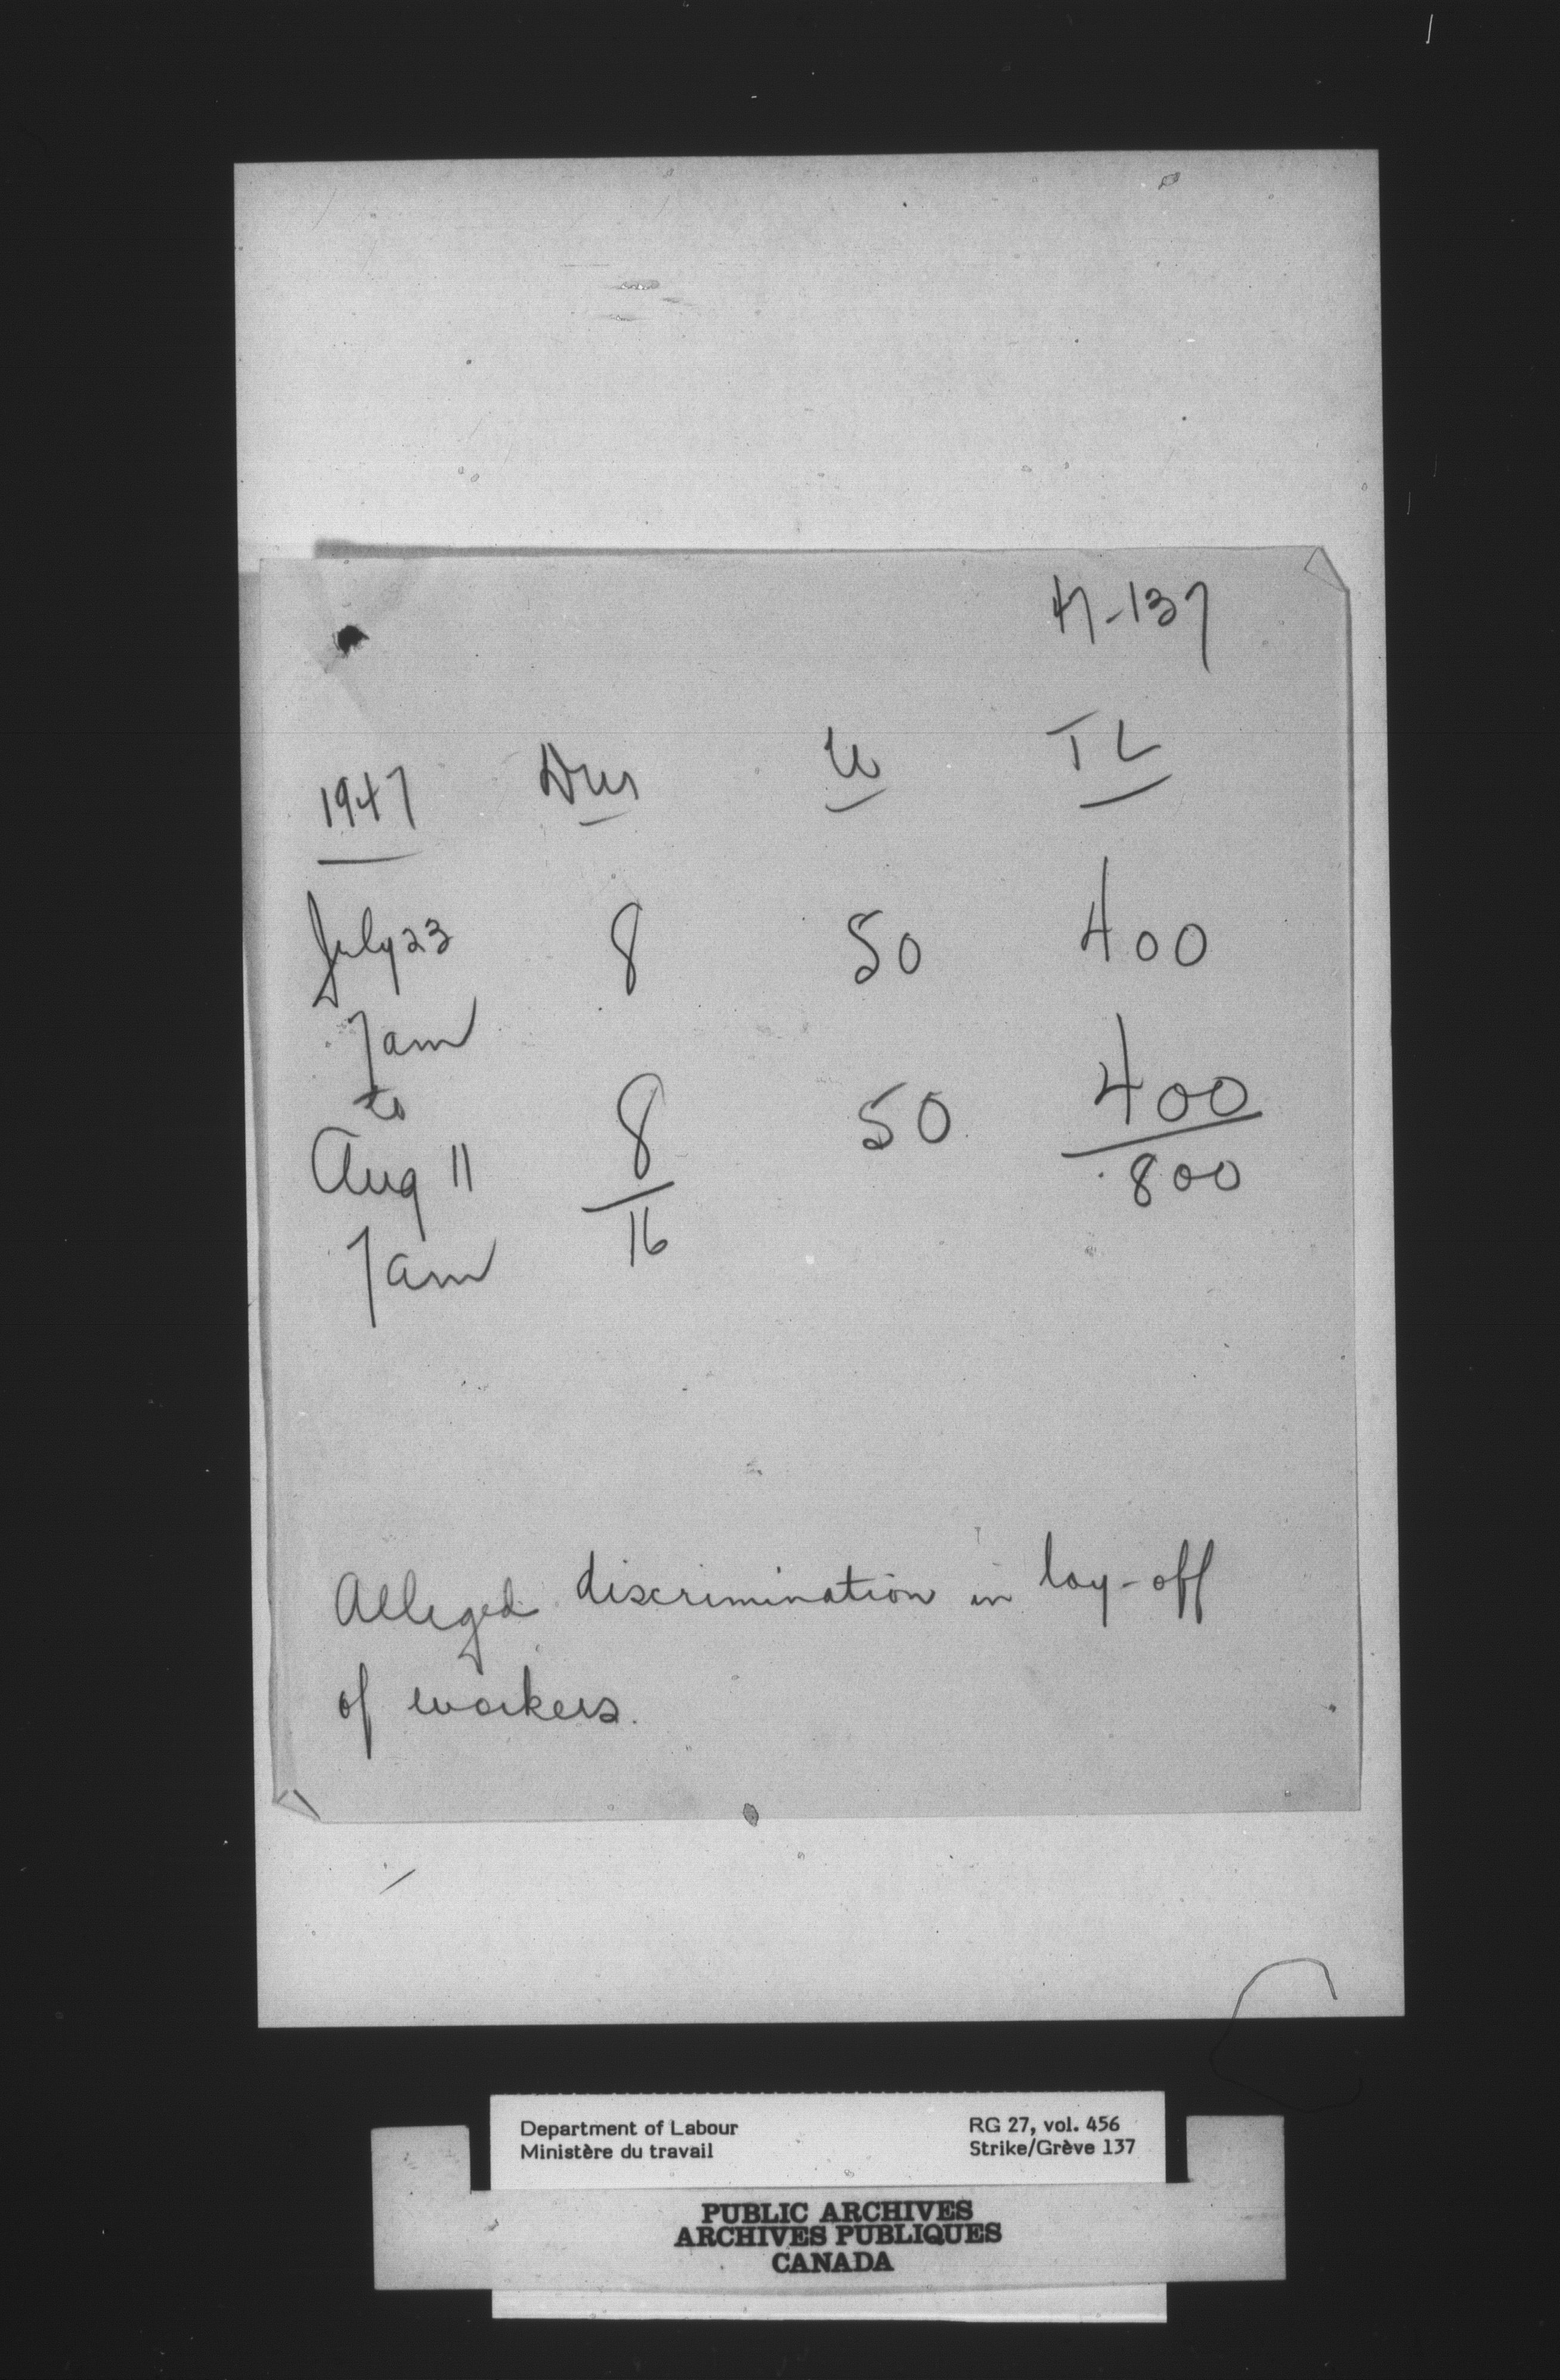 47-137
1947 Dur W TL
July 23 8 50 400
7am
to
Aug 11 8 50 400
7am 16 800
Alleged discrimination in lay-off
of workers.
Department of Labour RG 27, vol. 456
Ministère du travail Strike/Grève 137
PUBLIC ARCHIVES
ARCHIVES PUBLIQUES
CANADA